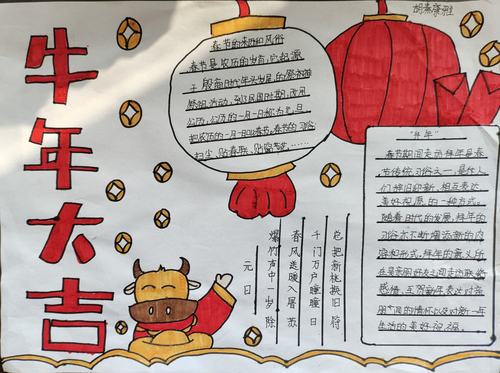 牛年大吉
春节的来历和风俗
春节是农历的岁首,它起源
于殷商时代年头岁尾的祭神
祭祖活动,到了民国时期,改用
公历,公历的一月一日称为元旦,
把农历的一月一日叫春节,春节的习俗
扫尘,贴春联,贴窗花……
元日
爆竹声中一岁除
春风送暖入屠苏
千门万户曈曈日
总把新桃换旧符
"拜年"
春节期间走动拜年是春
节传统习俗之一,是人
们辞旧迎新,相互表达
美好祝愿的一种方式。
随着时代的发展,拜年的
习俗亦不断增添新的内
容和形式,拜年的意义所
在是亲朋好友之间走访联络
感情、互贺新年表达对亲
朋间的情怀以及对新一年
生活的美好祝福。